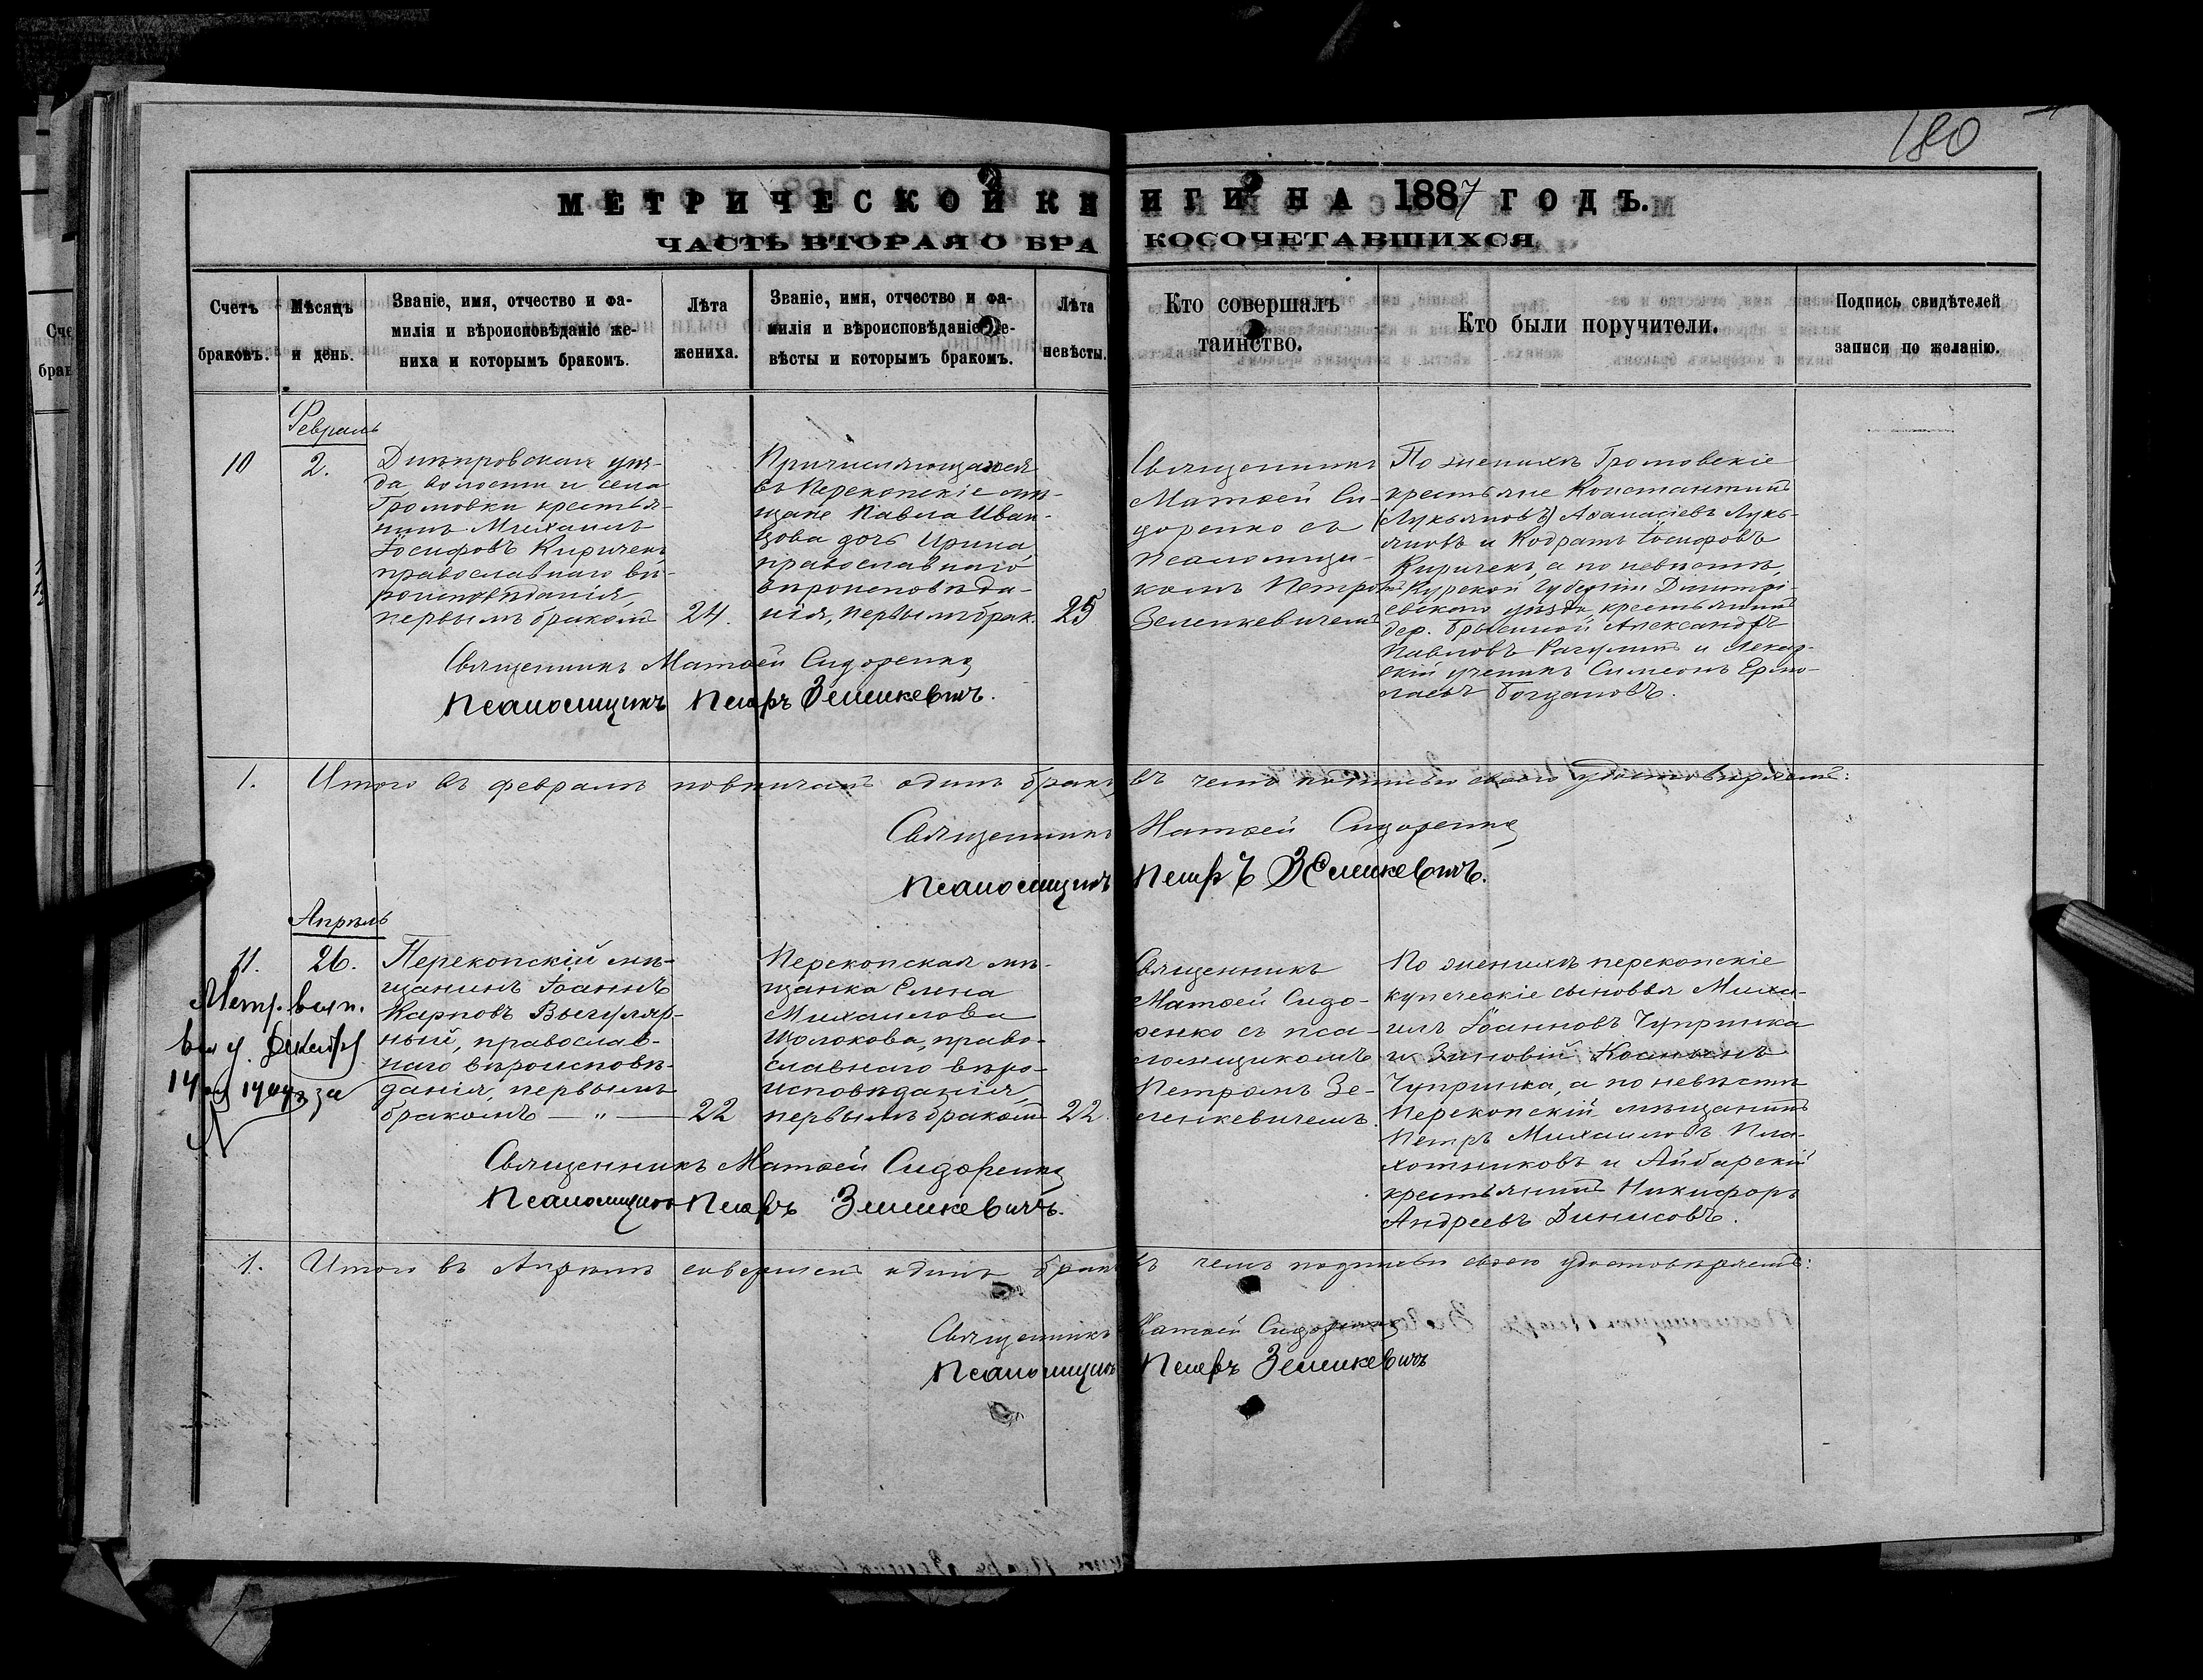 180
МЕТРИЧЕСКОЙ КНИГИ НА 1887 ГОДЪ.
ЧАСТЬ ВТОРАЯ О БРАКОСОЧЕТАВШИХСЯ
Счетъ
браковъ.
Мѣсяцъ
и день.
Званіе, имя, отчество и фа-
милія и вѣроисповѣданіе же-
ниха и которымъ бракомъ.
Лѣта
жениха.
Званіе, имя, отчество и фа-
милія и вѣроисповѣданіе не-
вѣсты и которымъ бракомъ.
Лѣта
невѣсты.
Кто совершалъ
таинство.
Кто были поручители.
Подпись свидѣтелей
записи по желанію.
Февраль
10
2.
Днѣпровскаго уѣз-
да волости и села
Громовки крестья-
нинъ Михаилъ
Іосифовъ Киричекъ
православнаго вѣ-
роисповѣданія,
первымъ бракомъ
24.
Причисляющаяся
въ Перекопскіе мѣ-
щане Павла Иван-
цова дочь Ирина,
православнаго
вѣроисповѣда-
нія, первымъ брак.
25
Священникъ
Матѳей Си-
доренко съ
псаломщи-
комъ Петромъ
Зеленкевичемъ
По женихѣ Громовскіе
крестьяне Константинъ
(Лукьяновъ) Аѳанасіевъ Лукь-
яновъ и Кодратъ Іосифовъ
Киричекъ, а по невѣстѣ
Курской губерніи Дмитрі-
евскаго уѣзда, крестьянинъ
дер. Александръ
Павловъ и
ученикъ Симеонъ Ермо-
лаевъ Богдановъ.
Священникъ Матѳей Сидоренко
Псаломщикъ Петръ Зеленкевичъ.
1. Итого въ февралѣ повѣнчанъ одинъ бракъ, въ чемъ подписью своею удостовѣряемъ:
Священникъ Матѳей Сидоренко
Псаломщикъ Петръ Зеленкевичъ.
Апрѣль
11.
26.
Метр. вып.
14
за
Перекопскій мѣ-
щанинъ Іоаннъ
Карповъ
православ-
наго вѣроисповѣ-
данія, первымъ
бракомъ — " —
22
Перекопская мѣ-
щанка Елена
Михаилова
Щолокова, право-
славнаго вѣро-
исповѣданія,
первымъ бракомъ
22.
Священникъ
Матѳей Сидо-
ренко съ пса-
ломщикомъ
Петромъ Зе-
ленкевичемъ.
По женихѣ перекопскіе
купеческіе сыновья Миха-
илъ Іоанновъ Чупринка
и Зиновій
Чупринка, а по невѣстѣ
Перекопскій мѣщанинъ
Петръ Михаиловъ Пла-
хотниковъ и Айбарскій
крестьянинъ Никифоръ
Андреевъ Динисовъ.
Священникъ Матѳей Сидоренко
Псаломщикъ Петръ Зеленкевичъ.
1. Итого въ Апрѣлѣ совершенъ одинъ бракъ въ чемъ подписью своею удостовѣряемъ:
Священникъ Матѳей Сидоренко
Псаломщикъ Петръ Зеленкевичъ